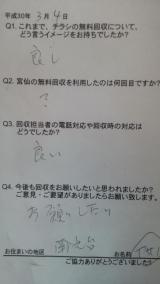 平成30年 3月 4日
Q1. これまで、チラシの無料回収について、
どう言うイメージをお持ちでしたか?
良い
Q2. 宮仙の無料回収を利用したのは何回目ですか?
?
Q3. 回収担当者の電話対応や回収時の対応は
どうでしたか?
良い
Q4. 今後も回収をお願いしたいと思われましたか?
ご意見・ご要望がありましたらお願い致します。
お願いしたい
お住まいの地区 南光台 お名前
ご協力ありがとうございました